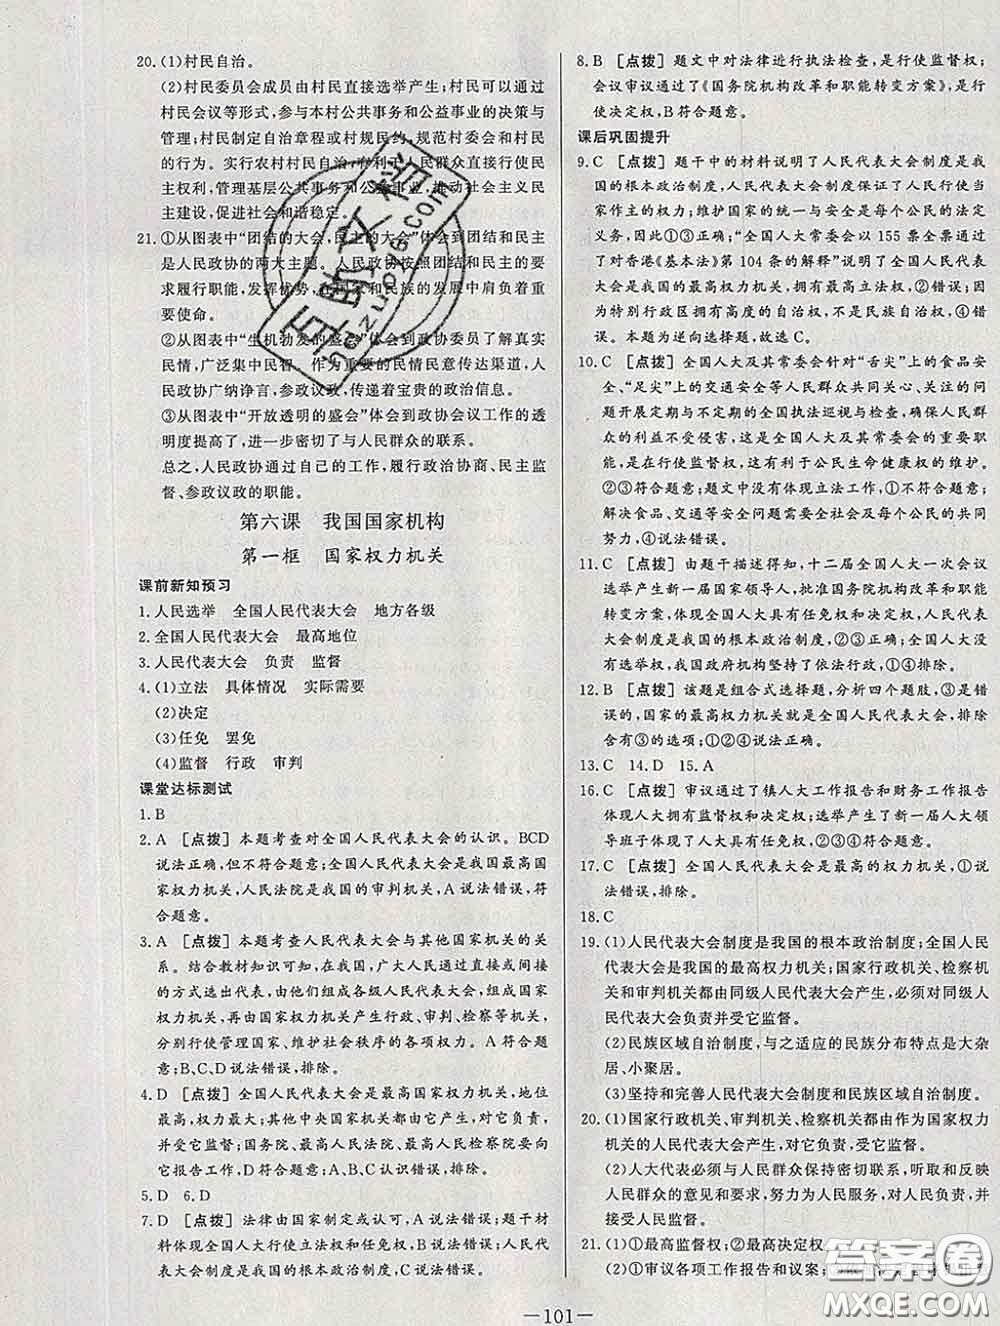 20. (1)村民自治。
(2)村民委员会成员由村民直接选举产生;村民还可以通过
村民会议等形式，参与本村公共事务和公益事业的决策与
管理;村民制定自治章程或村规民约，规范村委会和村民
的行为。实行农村村民自治，有利于人民群众直接行使民
主权利,管理基层公共事务和公益事业，推动社会主义民
主建设，促进社会和谐稳定。
21. ①从图表中“团结的大会，民主的大会”体会到团结和民主
是人民政协的两大主题。人民政协按照团结和民主的要
求履行职能，发挥优势，在国家和民族的发展中肩负着重
要使命。
②从图表中“生机勃发的盛会”体会到政协委员了解真实
民情，广泛集中民智，作为重要的民情民意传达渠道，人
民政协广纳诤言，参政议政，传递着宝贵的政治信息。
③从图表中“开放透明的盛会”体会到政协会议工作的透
明度提高了，进一步密切了与人民群众的联系。
总之，人民政协通过自己的工作，履行政治协商、民主监
督、参政议政的职能。
第六课　我国国家机构
第一框　国家权力机关
课前新知预习
1. 人民选举　全国人民代表大会　地方各级
2. 全国人民代表大会　最高地位
3. 人民代表大会　负责　监督
4. (1)立法　具体情况　实际需要
(2)决定
(3)任免　罢免
(4)监督　行政　审判
课堂达标测试
1. B
2. A ［点拨］ 本题考查对全国人民代表大会的认识。BCD
说法正确，但不符合题意;全国人民代表大会是我国最高国
家权力机关，人民法院是我国的审判机关，A说法错误，符
合题意。
3. A ［点拨］ 本题考查人民代表大会与其他国家机关的关
系。结合教材知识可知，在我国，广大人民通过直接或间接
的方式选出代表，由他们组成各级人民代表大会，组成国家
权力机关，再由国家权力机关产生行政、审判、检察等机关，
分别行使管理国家、维护社会秩序的各项权力。A符合题
意;B、C、D说法错误，排除。
4. D ［点拨］ 全国人民代表大会是我国最高权力机关，地位
最高、权力最大;其他中央国家机关都由它产生，对它负责，
并受它监督;国务院、最高人民法院、最高人民检察院要向
它报告工作，D符合题意;A、B、C认识错误，排除。
5. D　6. D
7. D ［点拨］ 法律由国家制定或认可，A说法错误;题干材
料体现全国人大行使立法权和任免权，B说法错误;人民代
表大会制度是我国的根本政治制度，C说法错误。
8. B ［点拨］ 题文中对法律进行执法检查，是行使监督权;
会议审议通过了《国务院机构改革和职能转变方案》，是行
使决定权，B符合题意。
课后巩固提升
9. C ［点拨］ 题干中的材料说明了人民代表大会制度是我
国的根本政治制度，人民代表大会制度保证了人民行使当
家作主的权力;维护国家的统一与安全是每个公民的法定
义务，因此①③正确;“全国人大常委会以155票全票通过
了对香港《基本法》第104条的解释”说明了全国人民代表
大会是我国的最高权力机关，拥有最高立法权，②错误;因
为特别行政区拥有高度的自治权，不是民族自治权，④错
误。本题为逆向选择题，故选C。
10. C ［点拨］ 全国人大及其常委会针对“舌尖”上的食品安
全、“足尖”上的交通安全等人民群众共同关心、关注的问
题开展定期与不定期的全国执法巡视与检查，确保人民群
众的利益不受侵害，这是全国人大及其常委会的重要职
能，是在行使监督权，这有利于公民生命健康权的维护。
②③符合题意;题文中没有体现立法工作，①不符合题意;
解决食品、交通等安全问题需要全社会及每个公民的共同
努力，④说法错误。
11. C ［点拨］ 由题干描述得知，十二届全国人大一次会议
选举产生新一届国家领导人，批准国务院机构改革和职能
转变方案，体现了全国人大具有任免权和决定权，人民代表
大会制度是我国的根本政治制度，②③正确;全国人大没
有选举权，我国政府机构坚持了依法行政，①④排除。
12. B ［点拨］ 该题是组合式选择题，分析四个题肢，③是错
误的，国家的最高权力机关就是全国人民代表大会，排除
含有③的选项;①②④说法正确。
13. C　14. D　15. A
16. C ［点拨］ 审议通过了镇人大工作报告和财务工作报告
体现人大拥有监督权和决定权;选举产生了新一届人大领
导班子体现了人大具有任免权，②③④符合题意。
17. C ［点拨］ 全国人民代表大会是最高的权力机关，①说
法错误，排除。
18. C
19. (1)人民代表大会制度是我国的根本政治制度;全国人民
代表大会是我国的最高权力机关;国家行政机关、检察机
关和审判机关都由同级人民代表大会产生，必须对同级人
民代表大会负责并受它监督。
(2)民族区域自治制度，与之适应的民族分布特点是大杂
居、小聚居。
(3)坚持和完善人民代表大会制度和民族区域自治制度。
20. (1)国家行政机关、审判机关、检察机关都由作为国家权力
机关的人民代表大会产生，对它负责，受它监督。
(2)人大代表必须与人民群众保持密切联系，听取和反映
人民群众的意见和要求，努力为人民服务，对人民负责，并
接受人民监督。
21. (1)①最高监督权;②最高决定权
(2)①审议各项工作报告和议案;
—101—
百助文档
答案圈
MXQE.COM